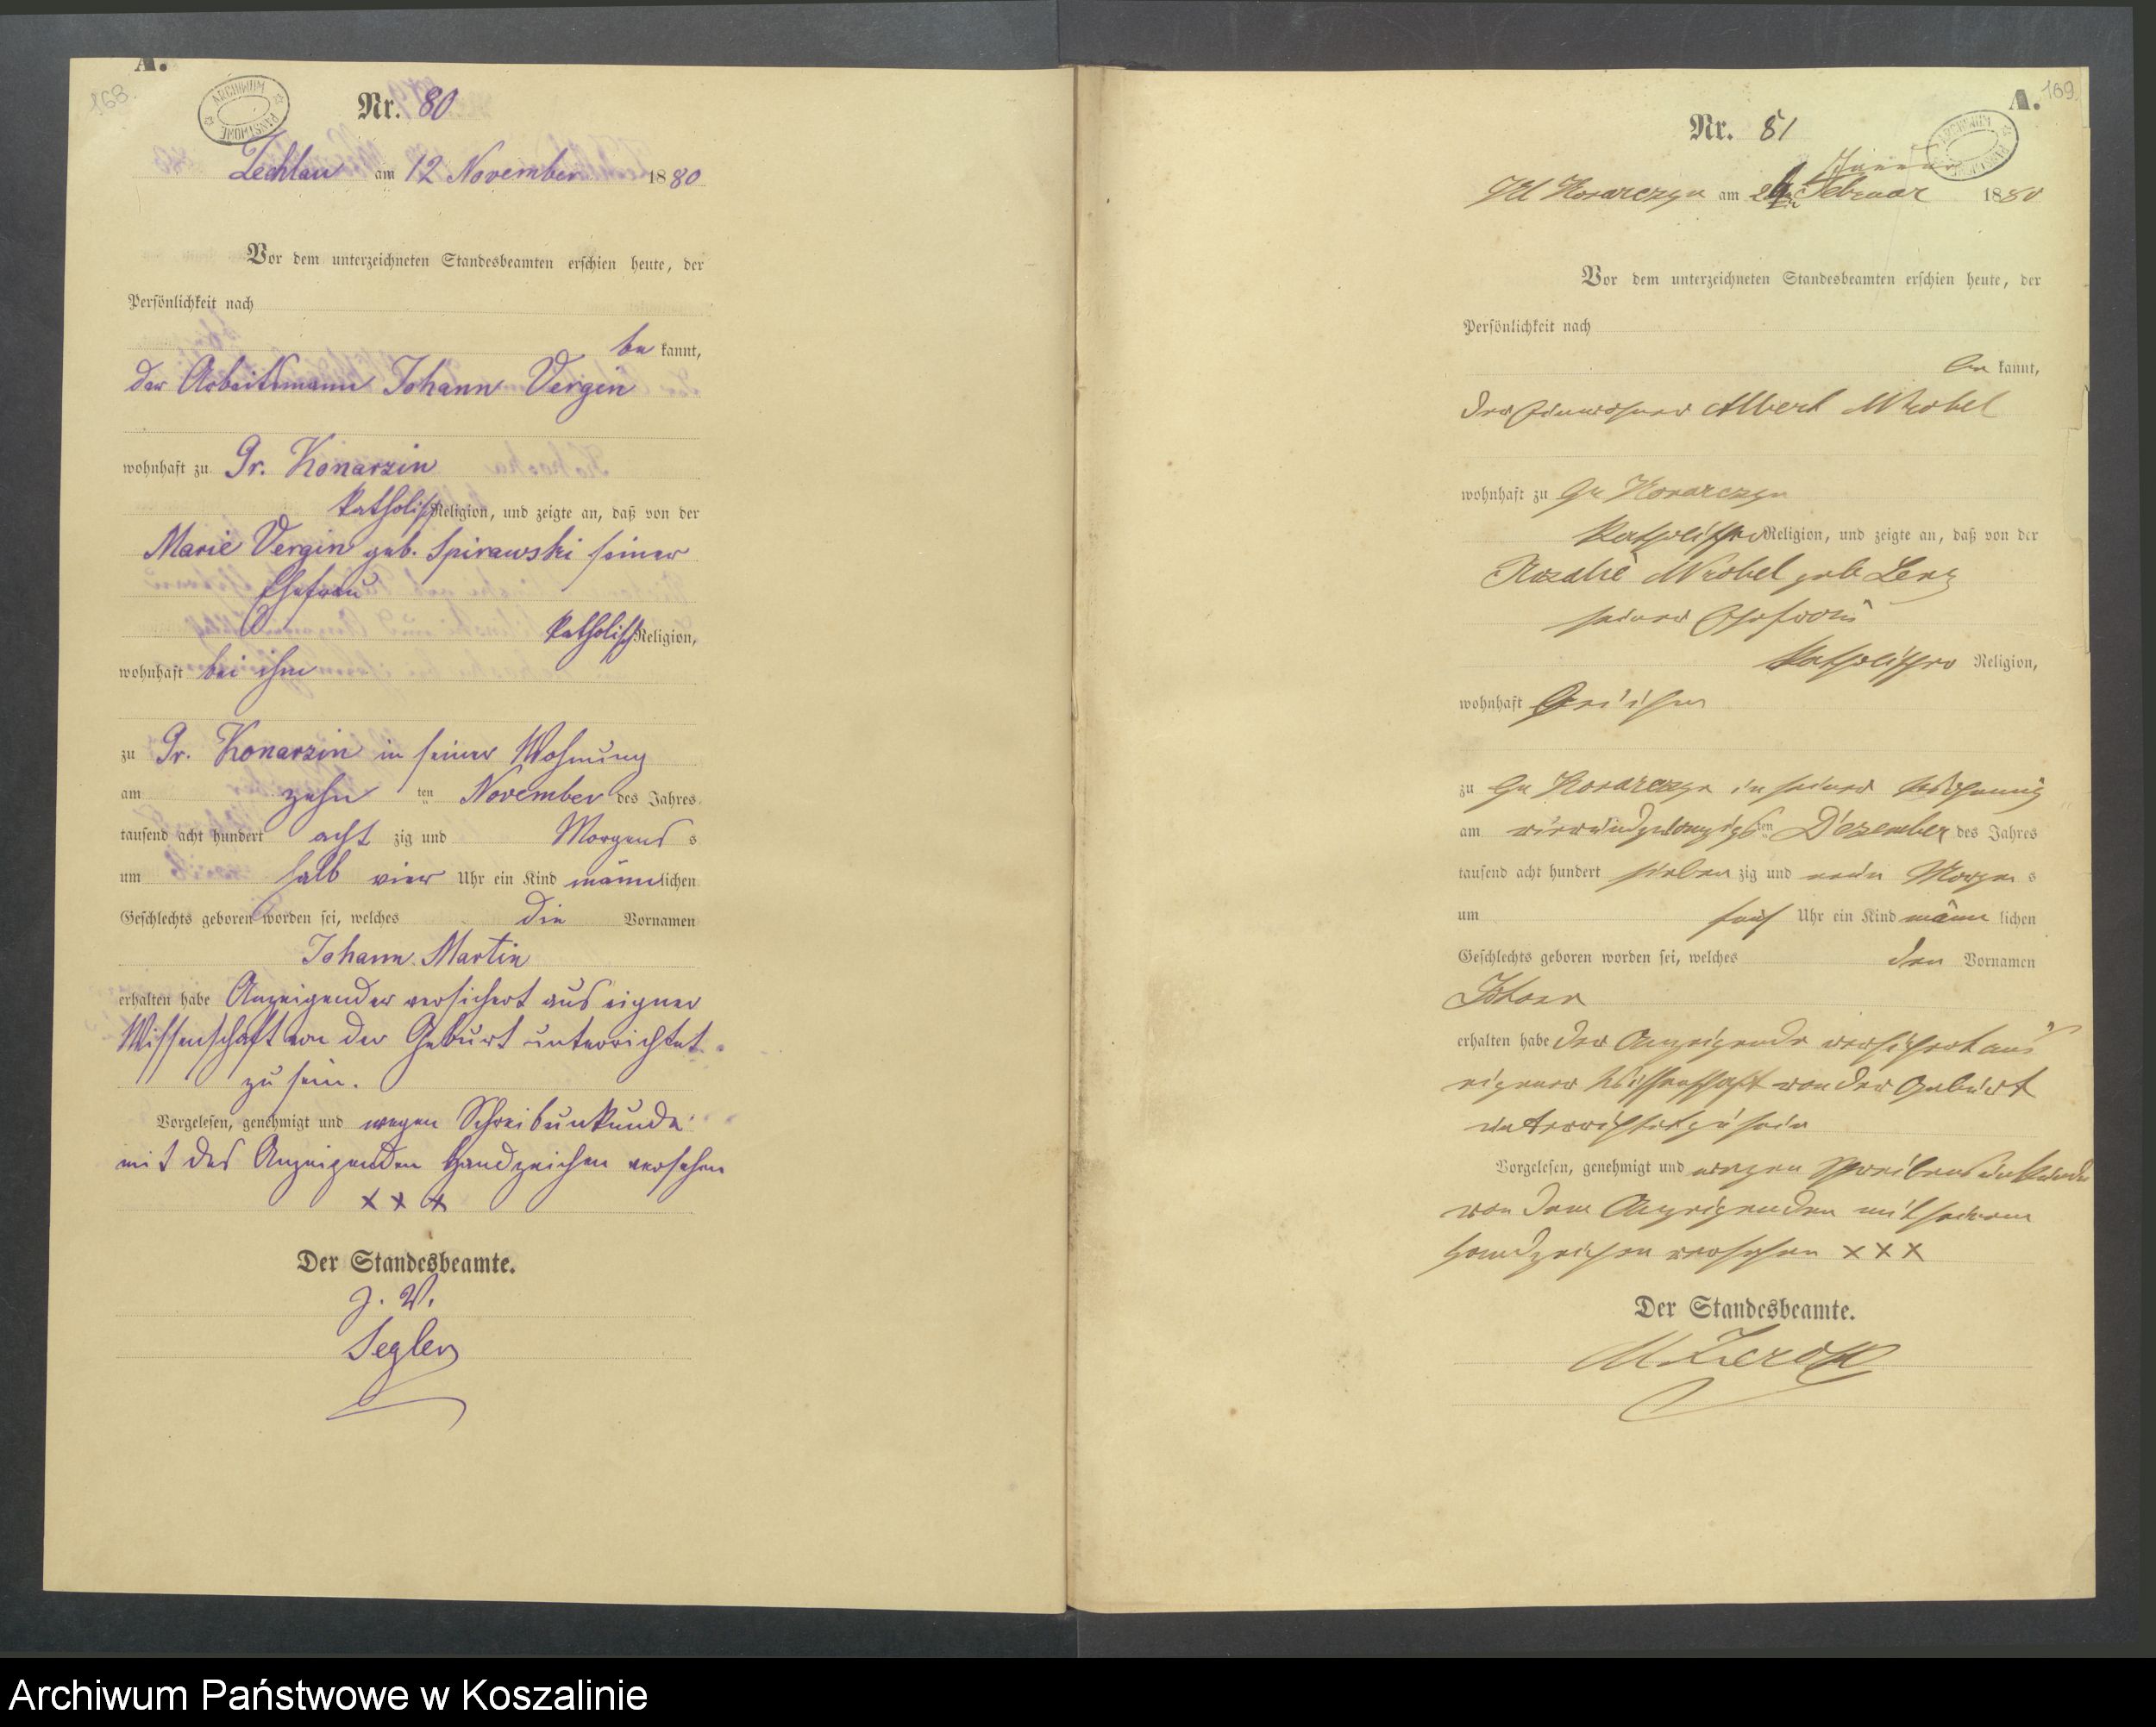 168.
A.
ARCHIWUM PAŃSTWOWE
Nr. 80
Zechlau am 12 November 1880
Vor dem unterzeichneten Standesbeamten erschien heute, der
Persönlichkeit nach
be kannt,
der Arbeitsmann Johann Vergin
wohnhaft zu Gr. Konarzin
katholisch Religion, und zeigte an, daß von der
Marie Vergin geb. Spirawski seiner
Ehefrau
katholisch Religion,
wohnhaft bei ihm
zu Gr. Konarzin in seiner Wohnung
am zehn ten November des Jahres
tausend acht hundert acht zig und Morgens s
um halb vier Uhr ein Kind männlichen
Geschlechts geboren worden sei, welches die Vornamen
Johann Martin
erhalten habe Anzeigender versichert aus eigner
Wissenschaft von der Geburt unterrichtet
zu sein.
Vorgelesen, genehmigt und wegen Schreibunkunde
mit des Anzeigenden Handzeichen versehen
x x x
Der Standesbeamte.
J. V.
Segler
169.
A.
ARCHIWUM PAŃSTWOWE
Nr. 81
Januar
Kl Konarczyn am Februar 1880
Vor dem unterzeichneten Standesbeamten erschien heute, der
Persönlichkeit nach
be kannt,
der Einwohner Albert Wrobel
wohnhaft zu Gr Konarczyn
katholischer Religion, und zeigte an, daß von der
Rosalie Wrobel geb Lenz
seiner Ehefrau
katholischer Religion,
wohnhaft bei ihm
zu Gr Konarczyn in seiner Wohnung
am vierundzwanzigsten Dezember des Jahres
tausend acht hundert sieben zig und neun Morgen s
um fünf Uhr ein Kind männ lichen
Geschlechts geboren worden sei, welches den Vornamen
Johann
erhalten habe der Anzeigende versichert aus
eigener Wissenschaft von der Geburt
unterrichtet zu sein
Vorgelesen, genehmigt und wegen Schreibensunkunde
von dem Anzeigenden mit seinem
Handzeichen versehen x x x
Der Standesbeamte.
Archiwum Państwowe w Koszalinie